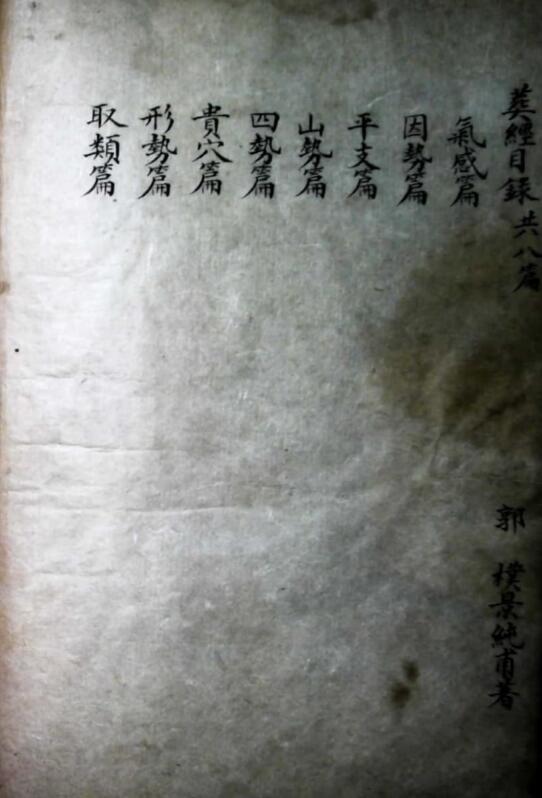 葬經目錄共八篇
郭 樸景純甫著
氣感篇
因勢篇
平支篇
山勢篇
四勢篇
貴穴篇
形勢篇
取類篇